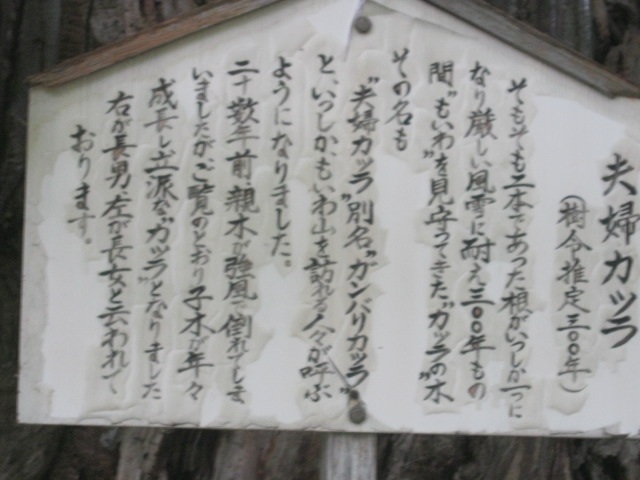 夫婦カツラ
(樹令推定三〇〇年)
そもそも二本であった根がいつしか一つに
なり厳しい風雪に耐え三〇〇年もの
間"もいわ"を見守ってきた"カツラの木"
その名も
"夫婦カツラ"別名"ガンバリカツラ"
と、いつしかもいわ山を訪れる人々が呼ぶ
ようになりました。
二十数年前、親木が強風で倒れてしま
いましたがご覧のとおり子木が年々
成長し立派な"カツラ"となりました
右が長男、左が長女と云われて
おります。